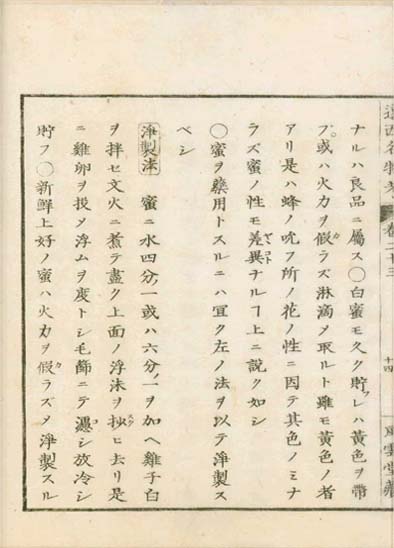 遠西名物考 卷二十三 十四 風雲堂藏
ナルハ良品ニ屬ス〇白蜜モ久ク貯フレハ黃色ヲ帶
ブ。或ハ火力ヲ假ラズ淋滴メ取ルト雖モ黃色ノ者
アリ是ハ蜂ノ吮フ所ノ花ノ性ニ因テ其色ノミナ
ラズ蜜ノ性モ差異ナルヿ上ニ說ク如シ
〇蜜ヲ藥用トスルニハ宜ク左ノ法ヲ以テ淨製ス
ベシ
淨製法 蜜ニ水四分ノ一或ハ六分ノ一ヲ加ヘ雞子白
ヲ拌セ文火ニ煮テ盡ク上面ノ浮沫ヲ抄ヒ去リ是
ニ雞卵ヲ投メ浮ムヲ度トシ毛篩ニテ濾シ放冷シ
貯フ〇新鮮上好ノ蜜ハ火力ヲ假ラズメ淨製スル